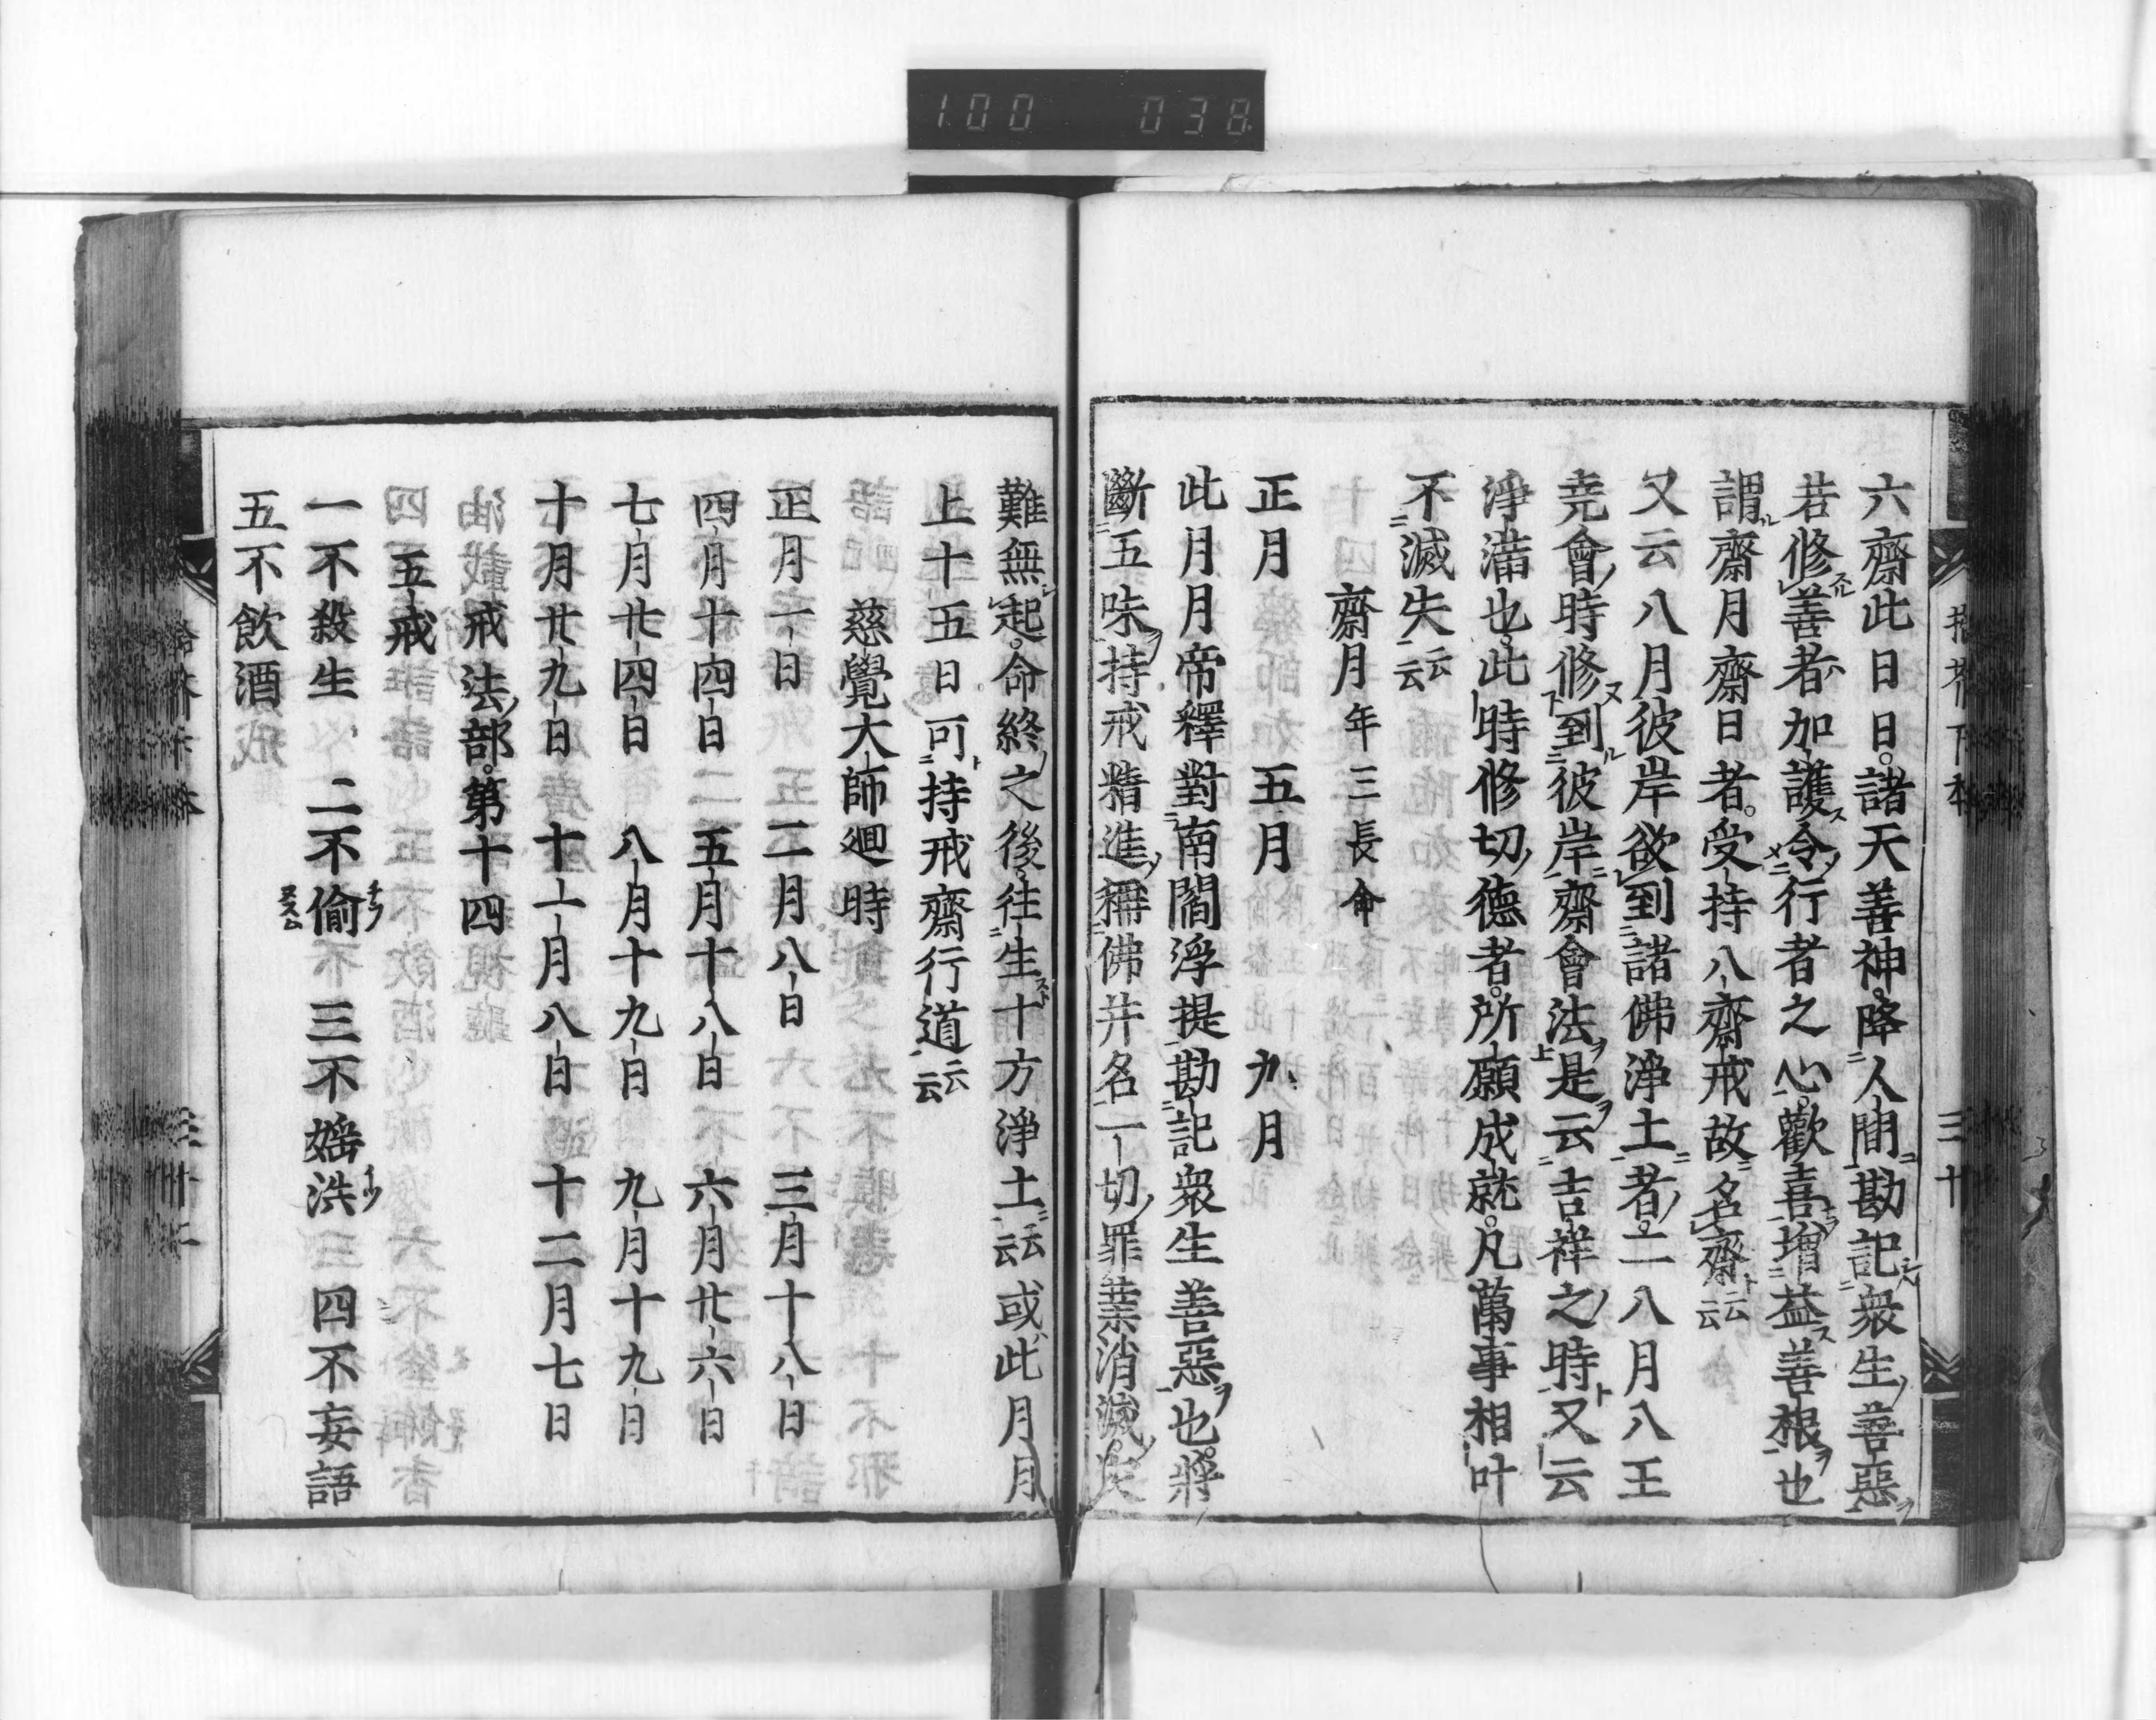 1.00 038
六齋此日日諸天善神降人間勘記衆生善惡
若修善者加護令行者之心歡喜増益善根也
謂齋月齋日者受持八齋戒故名齋云云
又云八月彼岸欲到諸佛淨土者二八月八王
尭會時修到彼岸齋會法是云吉祥之時又云
淨滿也此時修切德者所願成就凡萬事相叶
不滅失云云
齋月年三長命
正月 五月 九月
此月月帝釋對南閻浮提勘記衆生善惡也將
斷五味持戒精進稱佛并名一切罪業消滅
難無起命終之後往生十方淨土云云或此月月
上十五日可持戒齋行道云云
慈覺大師廻時
正月一日 二月八日 三月十八日
四月十四日 五月十八日 六月廿六日
七月廿四日 八月十九日 九月十九日
十月廿九日 十一月八日 十二月七日
戒法部第十四
五戒
一不殺生 二不偷 三不婬泆 四不妄語
五不飲酒